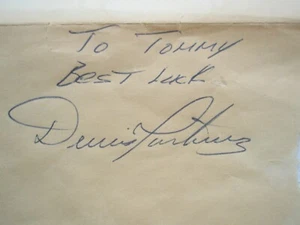 To Tommy
Best Luck
Dennis